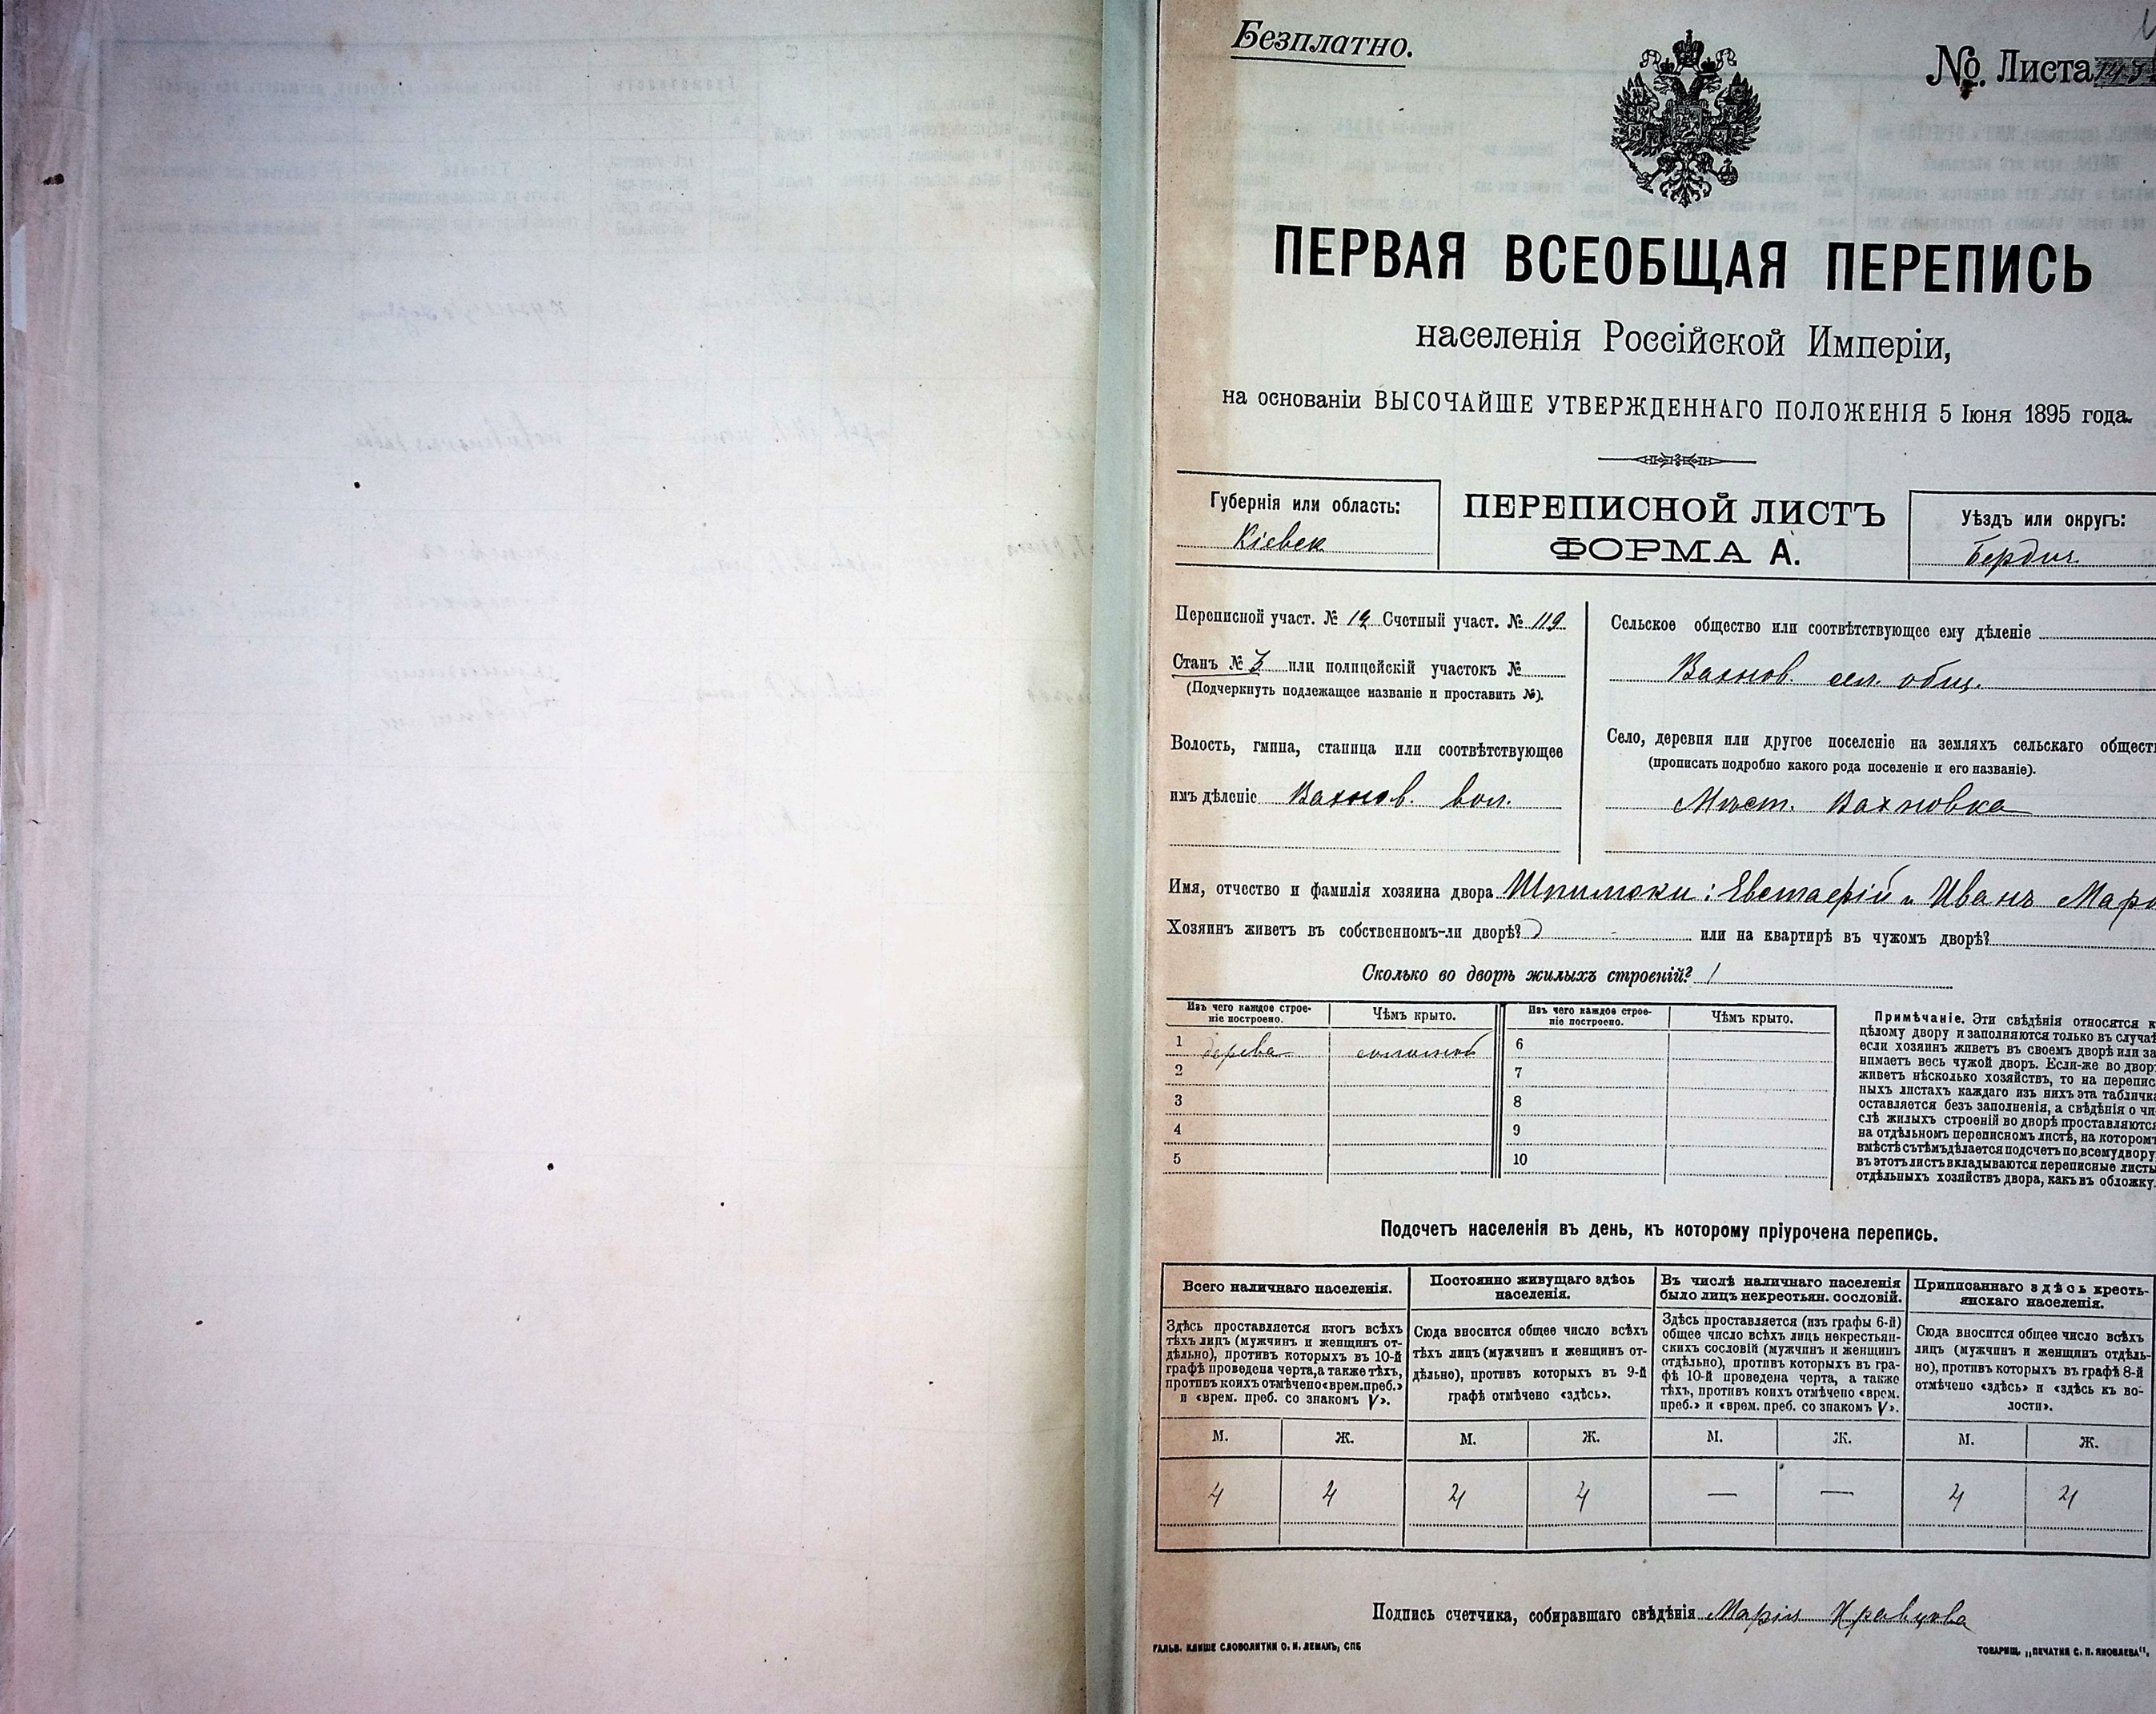 Безплатно.
№. Листа
ПЕРВАЯ ВСЕОБЩАЯ ПЕРЕПИСЬ
населенія Россійской Имперіи,
на основаніи ВЫСОЧАЙШЕ УТВЕРЖДЕННАГО ПОЛОЖЕНІЯ 5 Іюня 1895 года.
Губернія или область:
Кіевск
ПЕРЕПИСНОЙ ЛИСТЪ
ФОРМА А.
Уѣздъ или округъ:
Бердич.
Переписной участ. № 12 Счетный участ. № 119
Станъ № 3 или полицейскій участокъ №
(Подчеркнуть подлежащее названіе и проставить №).
Волость, гмина, станица или соотвѣтствующее
имъ дѣленіе Вахнов. вол.
Сельское общество или соотвѣтствующее ему дѣленіе
Вахнов. сел. общ.
Село, деревня или другое поселеніе на земляхъ сельскаго общест
(прописать подробно какого рода поселеніе и его названіе).
Мѣст. Вахновка
Имя, отчество и фамилія хозяина двора : Евстафій и Иванъ Мар
Хозяинъ живетъ въ собственномъ-ли дворѣ? или на квартирѣ въ чужомъ дворѣ?
Сколько во дворѣ жилыхъ строеній? 1
Изъ чего каждое строе-
ніе построено.
Чѣмъ крыто.
Изъ чего каждое строе-
ніе построено.
Чѣмъ крыто.
1 дерева соломой 6
2 7
3 8
4 9
5 10
Примѣчаніе. Эти свѣдѣнія относятся к
цѣлому двору и заполняются только въ случаѣ
если хозяинъ живетъ въ своемъ дворѣ или за
нимаетъ весь чужой дворъ. Если-же во двор
живетъ нѣсколько хозяйствъ, то на перепис
ныхъ листахъ каждаго изъ нихъ эта табличка
оставляется безъ заполненія, а свѣдѣнія о чи
слѣ жилыхъ строеній во дворѣ проставляются
на отдѣльномъ переписномъ листѣ, на котором
вмѣстѣ съ тѣмъ дѣлается подсчетъ по всему двору;
въ этотъ листъ вкладываются переписные листы
отдѣльныхъ хозяйствъ двора, какъ въ обложку.
Подсчетъ населенія въ день, къ которому пріурочена перепись.
Всего наличнаго населенія.
Здѣсь проставляется итогъ всѣхъ
тѣхъ лицъ (мужчинъ и женщинъ от-
дѣльно), противъ которыхъ въ 10-й
графѣ проведена черта, а также тѣхъ,
противъ коихъ отмѣчено «врем. преб.»
и «врем. преб. со знакомъ V».
Постоянно живущаго здѣсь
населенія.
Сюда вносится общее число всѣхъ
тѣхъ лицъ (мужчинъ и женщинъ от-
дѣльно), противъ которыхъ въ 9-й
графѣ отмѣчено «здѣсь».
Въ числѣ наличнаго населенія
было лицъ некрестьян. сословій.
Здѣсь проставляется (изъ графы 6-й)
общее число всѣхъ лицъ некрестьян-
скихъ сословій (мужчинъ и женщинъ
отдѣльно), противъ которыхъ въ гра-
фѣ 10-й проведена черта, а также
тѣхъ, противъ коихъ отмѣчено «врем.
преб.» и «врем. преб. со знакомъ V».
Приписаннаго здѣсь кресть-
янскаго населенія.
Сюда вносится общее число всѣхъ
лицъ (мужчинъ и женщинъ отдѣль-
но), противъ которыхъ въ графѣ 8-й
отмѣчено «здѣсь» и «здѣсь къ во-
лости».
М. Ж. М. Ж. М. Ж. М. Ж.
4 4 4 4 — — 4 4
Подпись счетчика, собиравшаго свѣдѣнія Марія Кравцова
ГАЛЬВ. КЛИШЕ СЛОВОЛИТНИ О. И. ЛЕМАНЪ, СПБ
ТОВАРИЩ. „ПЕЧАТНЯ С. П. ЯКОВЛЕВА“,